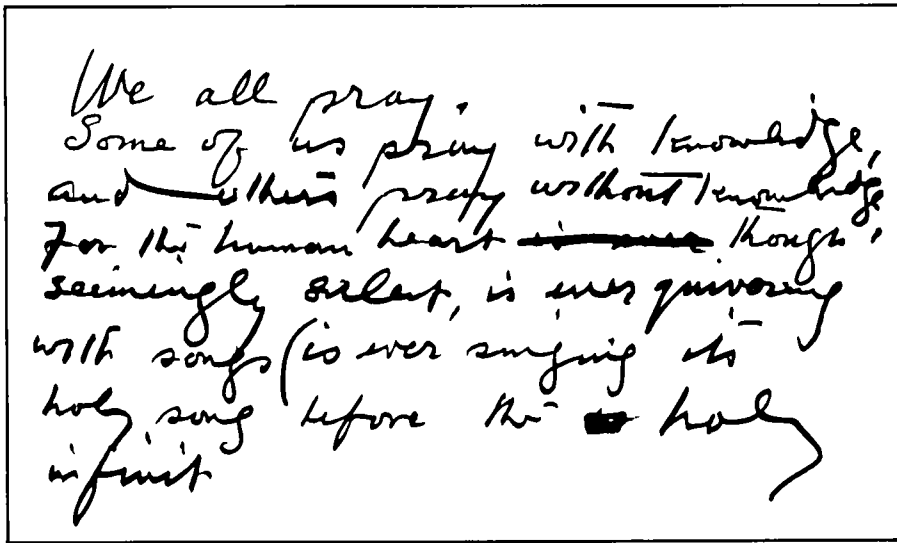 We all pray.
Some of us pray with knowledge,
and others pray without knowledge
For the human heart is ever though,
seemingly silent, is ever quivering
with songs (is ever singing its
holy song before the holy
infinit